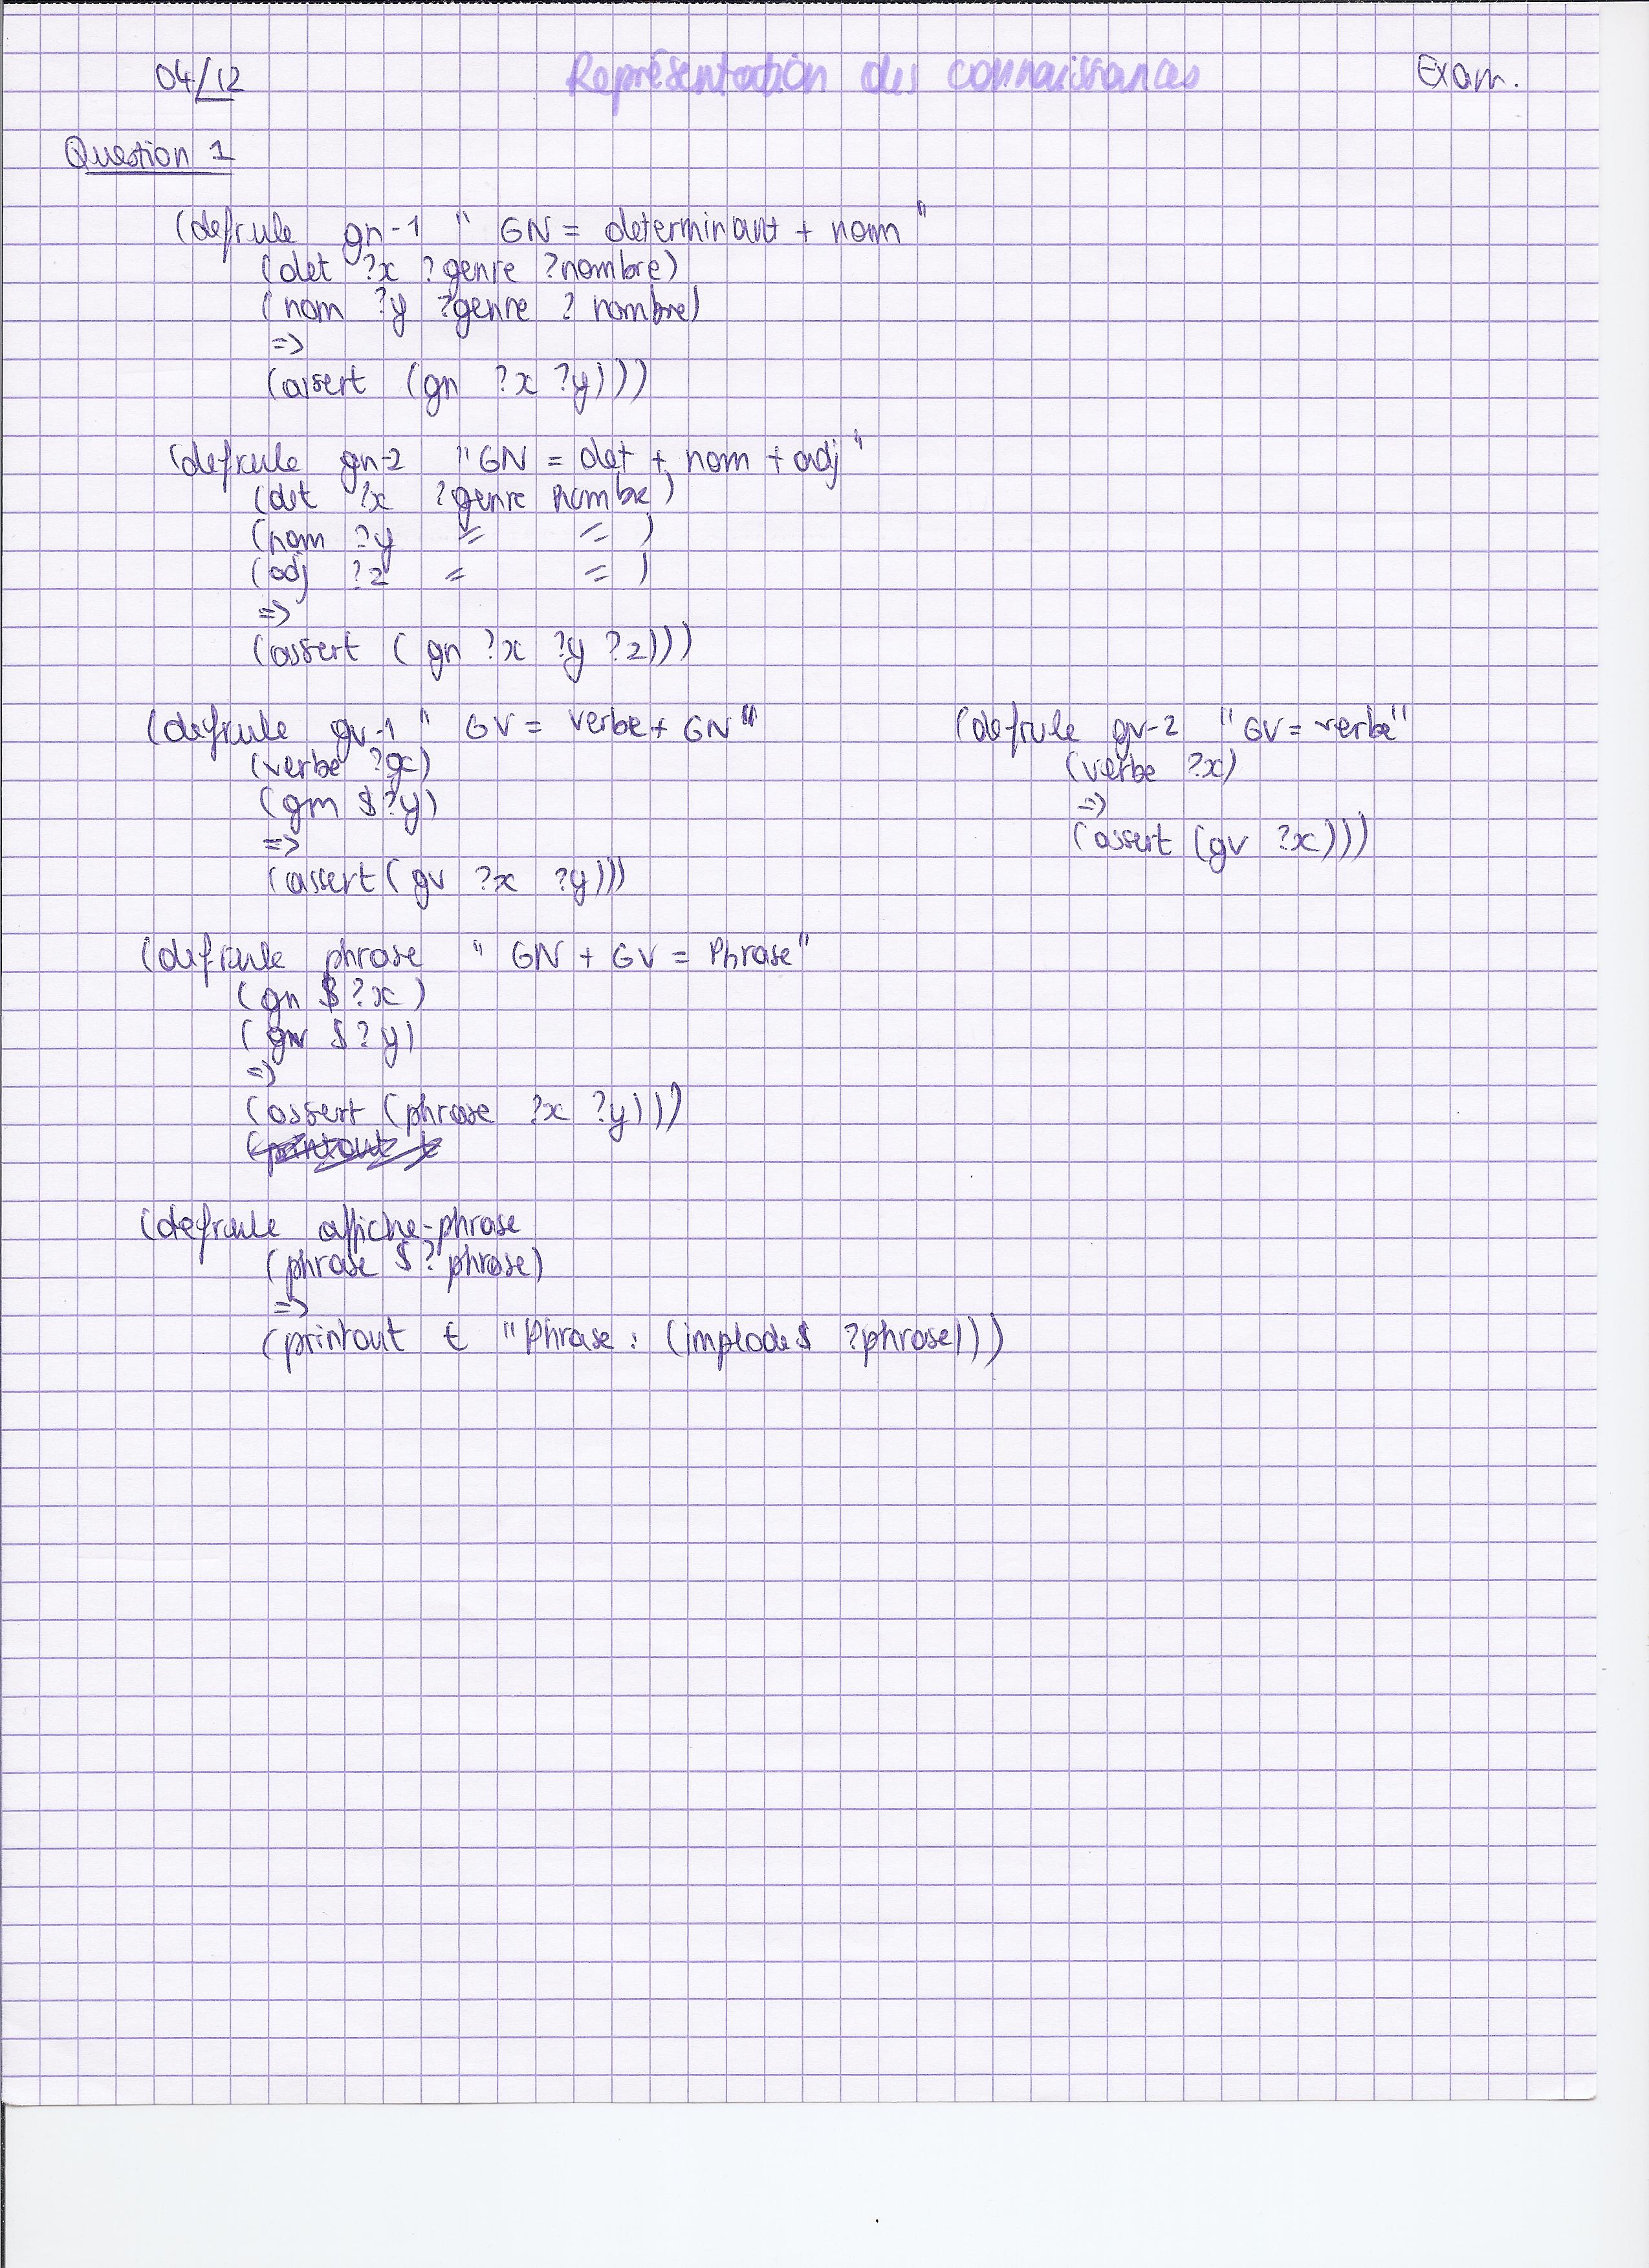 04/12 Représentation des connaissances Exam.
Question 1
(defrule gn-1 " GN = determinant + nom "
(det ?x ?genre ?nombre)
(nom ?y ?genre ? nombre)
=>
(assert (gn ?x ?y)))
(defrule gn-2 "GN = det + nom + adj "
(det ?x ?genre nombre)
(nom ?y = = )
(adj ?z = = )
=>
(assert ( gn ?x ?y ?z)))
(defrule gv-1 " GV = verbe + GN "
(verbe ?x)
(gn $?y)
=>
(assert ( gv ?x ?y)))
(defrule gv-2 "GV = verbe"
(verbe ?x)
=>
(assert (gv ?x)))
(defrule phrase " GN + GV = Phrase"
(gn $?x )
(gv $?y)
=>
(assert (phrase ?x ?y)))
(printout t
(defrule affiche-phrase
(phrase $? phrase)
=>
(printout t "Phrase : (implode$ ?phrase)))